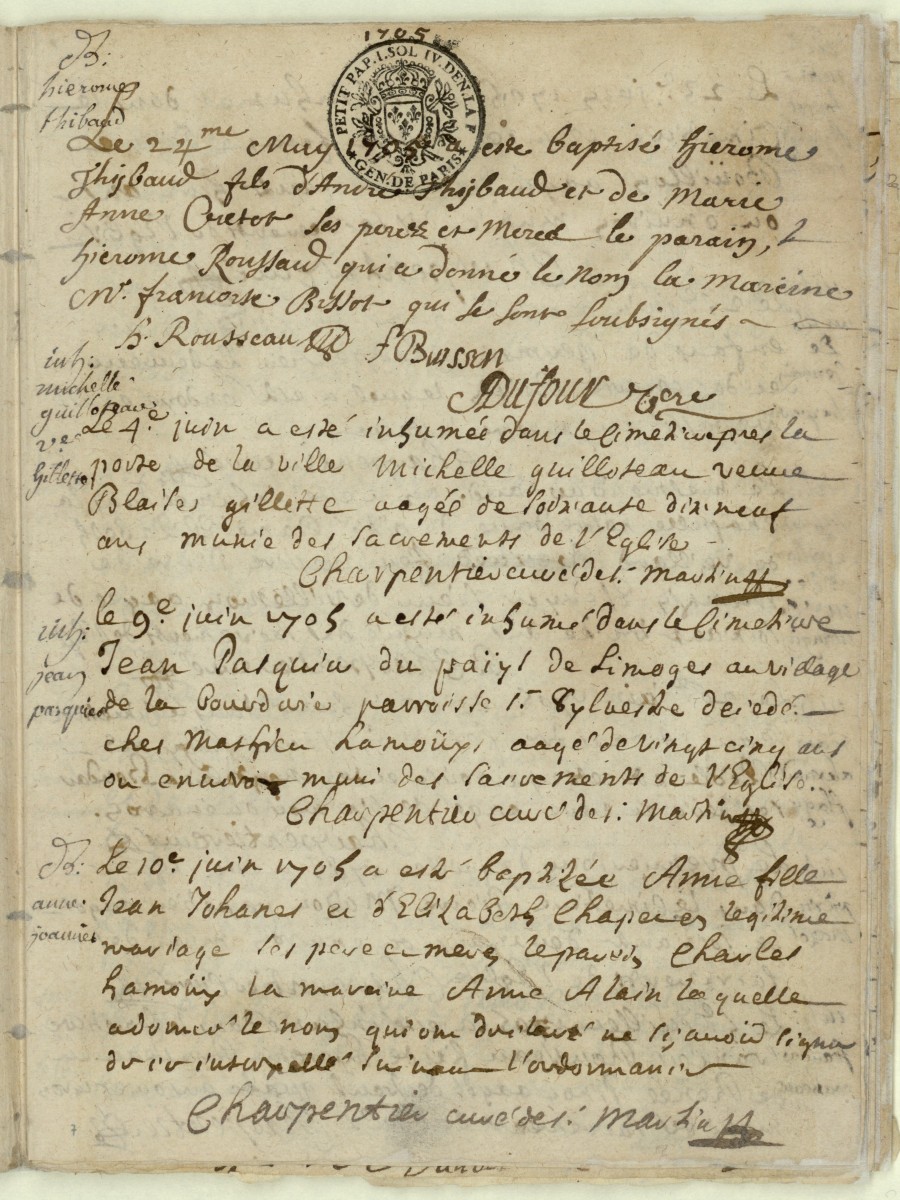 1705
PETIT PAP. I. SOL IV. DEN. LA F
GEN. DE PARIS
B:
hierome
thibaud
Le 24me May 1705 a este baptisé hiërome
Thÿbaud fils d'André Thÿbaud et de Marie
Anne Cretot ses perez et Merea le parain,
hierome Roussaud qui a donné le nom la mareine
francoise Bissot qui se sont soubsignés
h. Rousseau f Buisson
Dufour
inh:
michelle
guilloteau
ve
gillette
Le 4e juin a esté inhumée dans le Cimetiere pres la
porte de la ville Michelle guilloteau veuve
Blaise gillette aagée de soixante dix neuf
ans munie des sacrements de l'Eglise
Charpentier curé de st Martin
inh:
jean
pasquier
le 9e juin 1705 a esté inhumé dans le Cimetiere
Jean Pasquier du païys de Limoges au village
de la parroisse st Sylvestre decedé
ches Mathieu hamoüy aagé de vingt cinq ans
ou environ muni des sacrements de l'Eglise
Charpentier curé de st Martin
B:
anne
joannes
Le 10e juin 1705 a esté baptizée Anne fille
Jean Johanes et d'Elizabeth Chape en legitime
mariage ses pere et mere le parein Charles
hamoüy la mareine Anne Alain laquelle
a donné le nom qui ont declaré ne sçavoir signer
de ce interpellés suivant l'ordonnance
Charpentier curé de st Martin